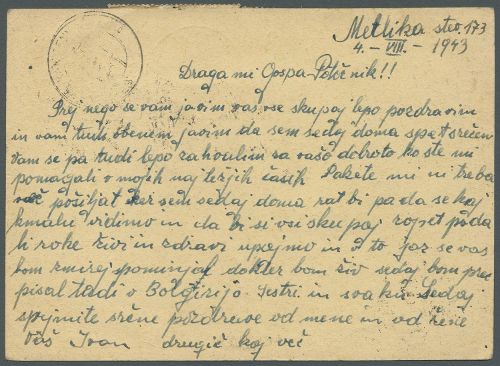 Metlika štev. 173
4. - VIII. - 1943
Draga mi Gospa - !!
Prej nego se vam javim vas vse skupaj lepo pozdravim
in vam tudi obenem javim da sem sedaj doma spet srečen
Vam se pa tudi lepo zahvalim za vašo dobroto ko ste mi
pomagali v mojih najtežjih časih Pakete mi ni treba
več pošiljat ker sem sedaj doma rat bi pa da se kaj
kmalu vidimo in da bi si vsi skupaj zopet poda
li roke živi in zdravi upajmo in to jaz se vas
bom zmirej spominjal dokler bom živ sedaj bom pre
pisal tudi v Bolgirijo. Sestri in svaku Sedaj
sprjmite srčne pozdrave od mene in od žene
Vaš Ivan drugič kaj več